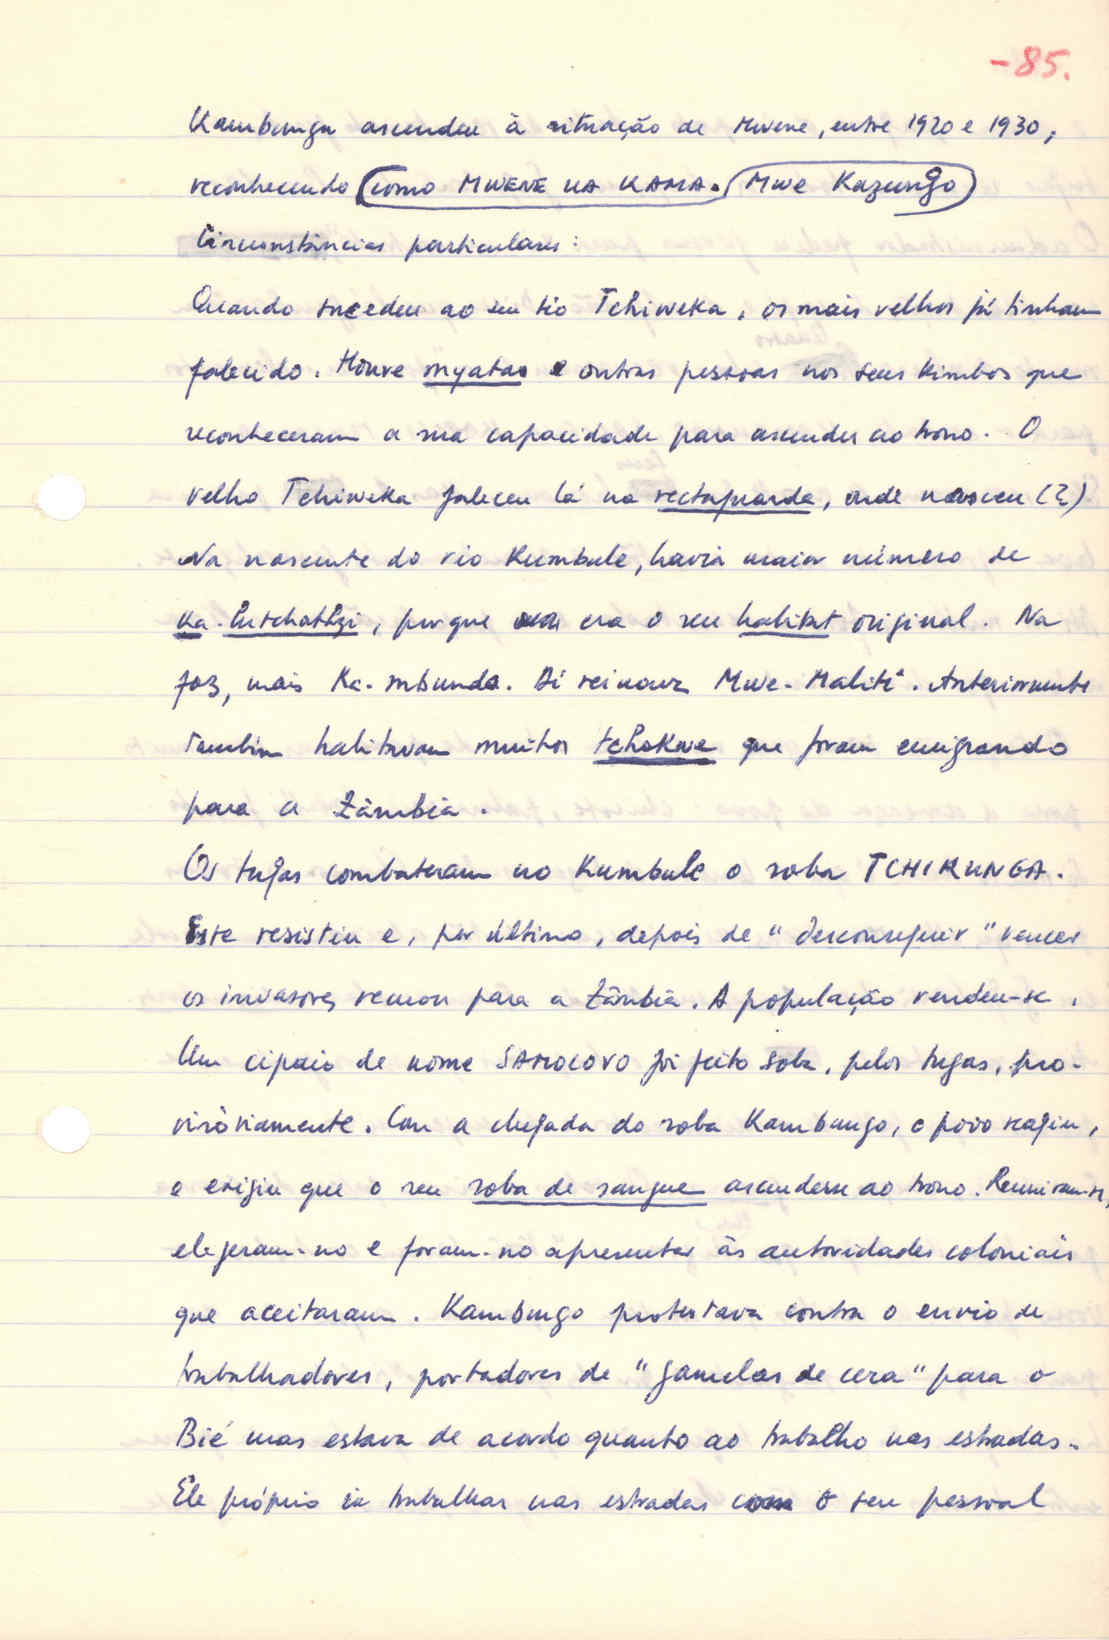 -85.
Kambungu ascendeu à situação de Mwene, entre 1920 e 1930,
reconhecendo como MWENE KA KAMA. Mwe Kazungo
Circunstâncias particulares:
Quando sucedeu ao seu tio Tchiweka, os mais velhos já tinham
falecido. Houve myatas e outras pessoas nos seus kimbos que
reconheceram a sua capacidade para ascender ao trono. O
velho Tchiweka faleceu lá na rectaguarda, onde nasceu (?)
Na nascente do rio Kumbule, havia maior número de
Ka-, porque era o seu habitat original. Na
foz, mais Ka-mbunda. Aí reinava Mwe-Maliti. Anteriormente
também habitavam muitos tchokwe que foram emigrando
para a Zâmbia.
Os tugas combateram no Kumbule o soba TCHIKUNGA.
Este resistiu e, por último, depois de "desconseguir" vencer
os invasores, recuou para a Zâmbia. A população rendeu-se.
Um cipaio de nome SAMOCOVO foi feito soba, pelos tugas, pro-
visòriamente. Com a chegada do soba Kambungo, o povo reagiu,
e exigiu que o seu soba de sangue ascendesse ao trono. Reuniram-se,
elegeram-no e foram-no apresentar às autoridades coloniais
que aceitaram. Kambungo protestava contra o envio de
trabalhadores, portadores de "gamelas de cera" para o
Bié mas estava de acordo quanto ao trabalho nas estradas.
Ele próprio ia trabalhar nas estradas com o seu pessoal